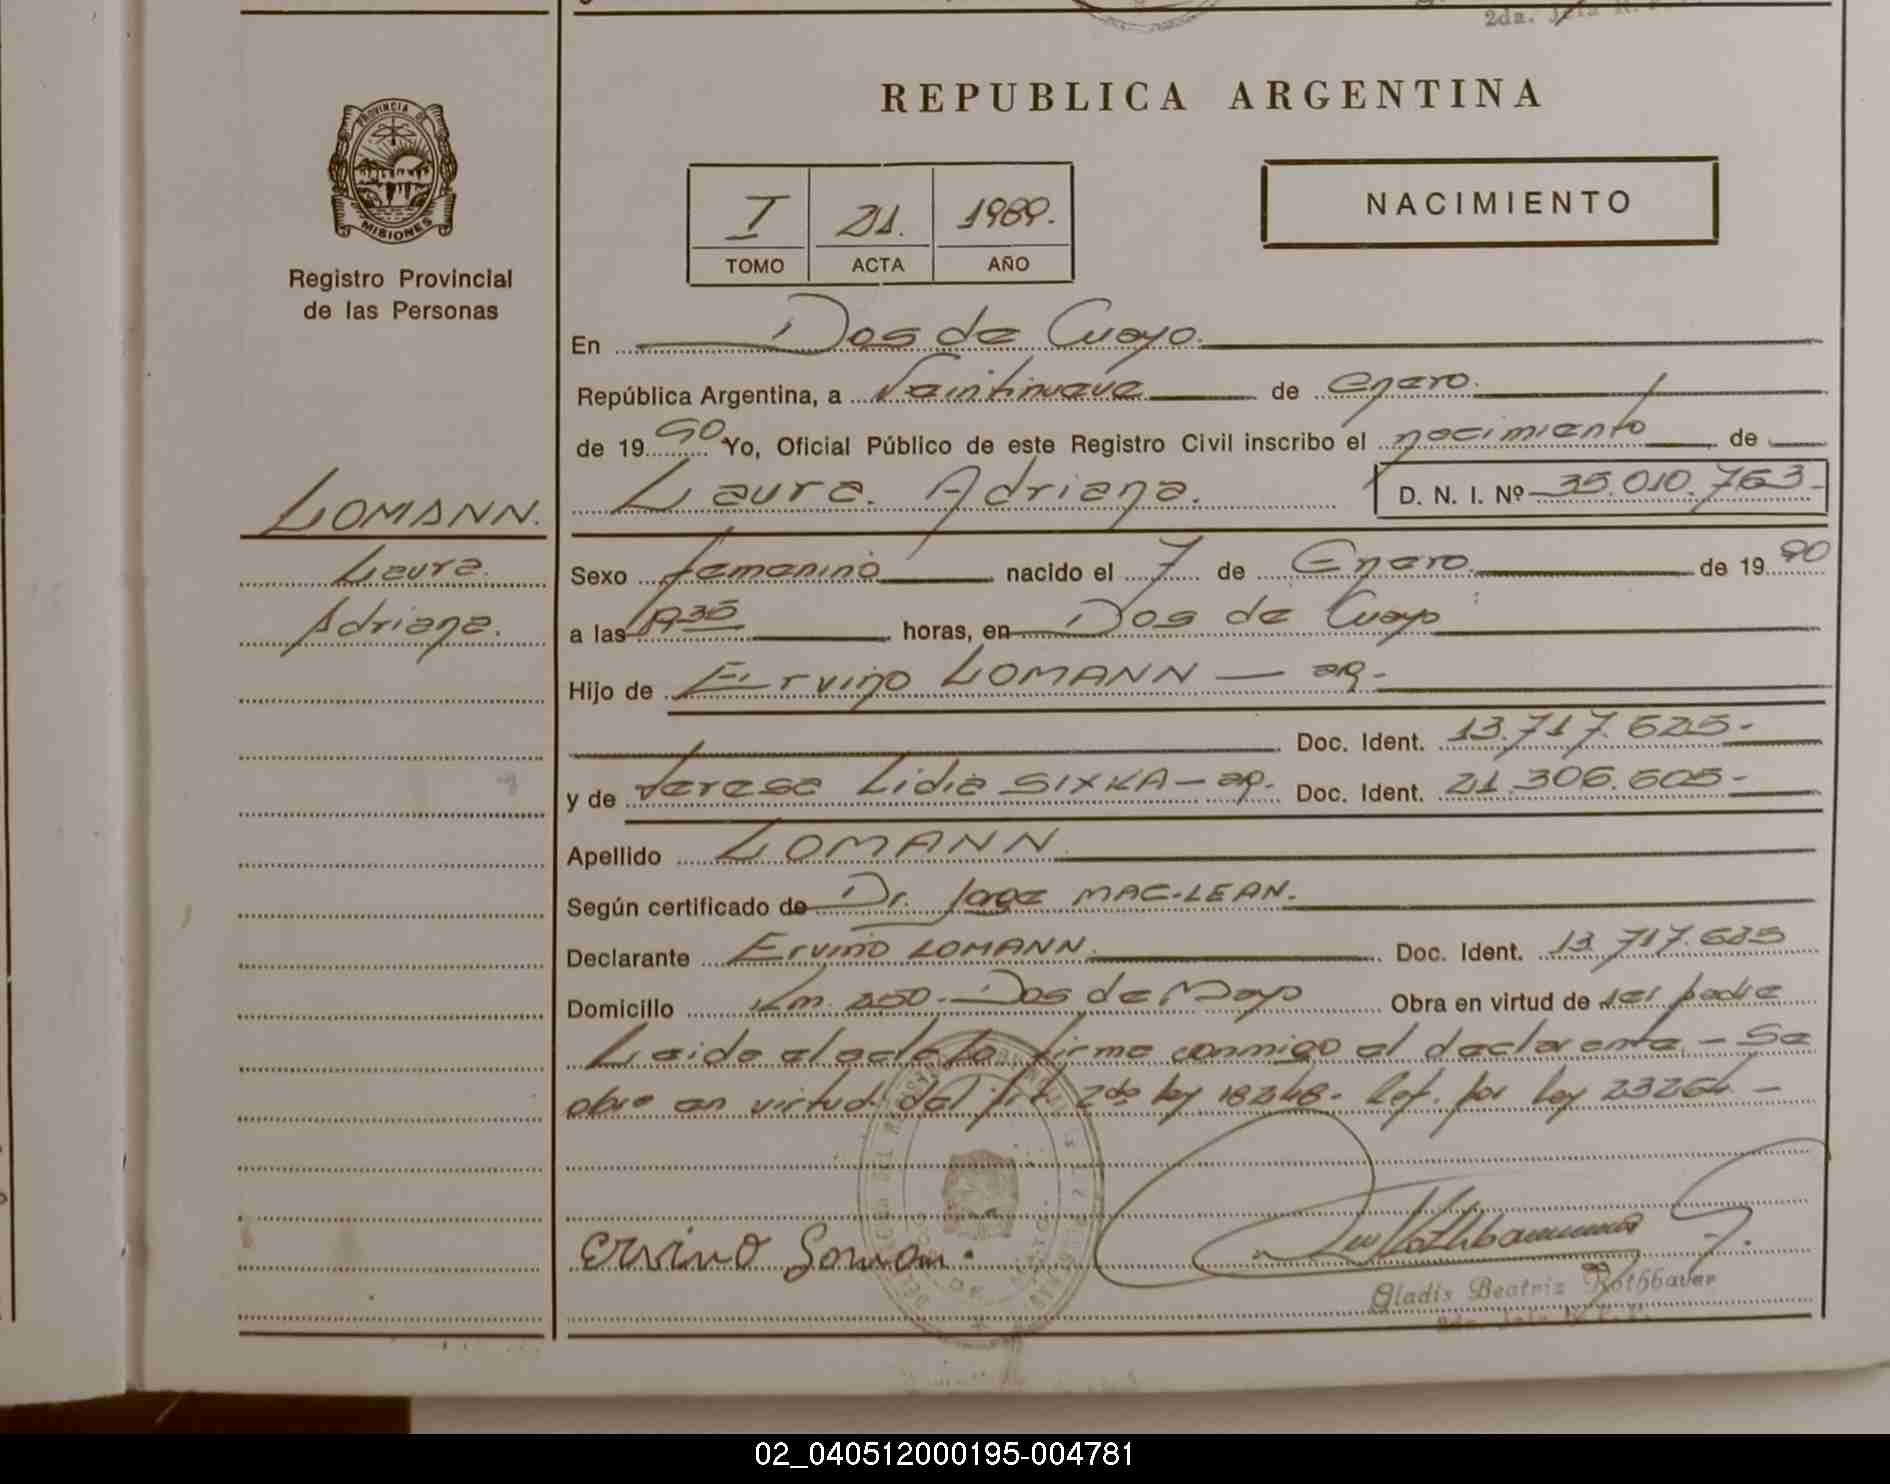 REPUBLICA ARGENTINA
PROVINCIA DE
MISIONES
Registro Provincial
de las Personas
I 21. 1989.
TOMO ACTA AÑO
NACIMIENTO
En Dos de Mayo.
República Argentina, a Veintinueve de Enero.
de 1990 Yo, Oficial Público de este Registro Civil inscribo el nacimiento de
LOMANN.
Laura
Adriana.
Laura. Adriana. D. N. I. Nº 35.010.763-
Sexo femenino nacido el 7 de Enero de 1990
a las 1935 horas, en Dos de Mayo
Hijo de Ervino LOMANN — arg.-
Doc. Ident. 13.717.625-
y de Teresa Lidia SIXKA - arg. Doc. Ident. 21.306.605-
Apellido LOMANN
Según certificado de Dr. Jorge MAC-LEAN.
Declarante Ervino LOMANN. Doc. Ident. 13.717.625
Domicilio Km. 250. Dos de Mayo Obra en virtud de ser padre
Leida el acta la firma conmigo el declarante - Se
obra en virtud del Art. 2do ley 18248. Ref. por ley 23264 -
Ervino Loman.
Gladis Beatriz Rothbauer
2da. Jefa R. P.
02_040512000195-004781